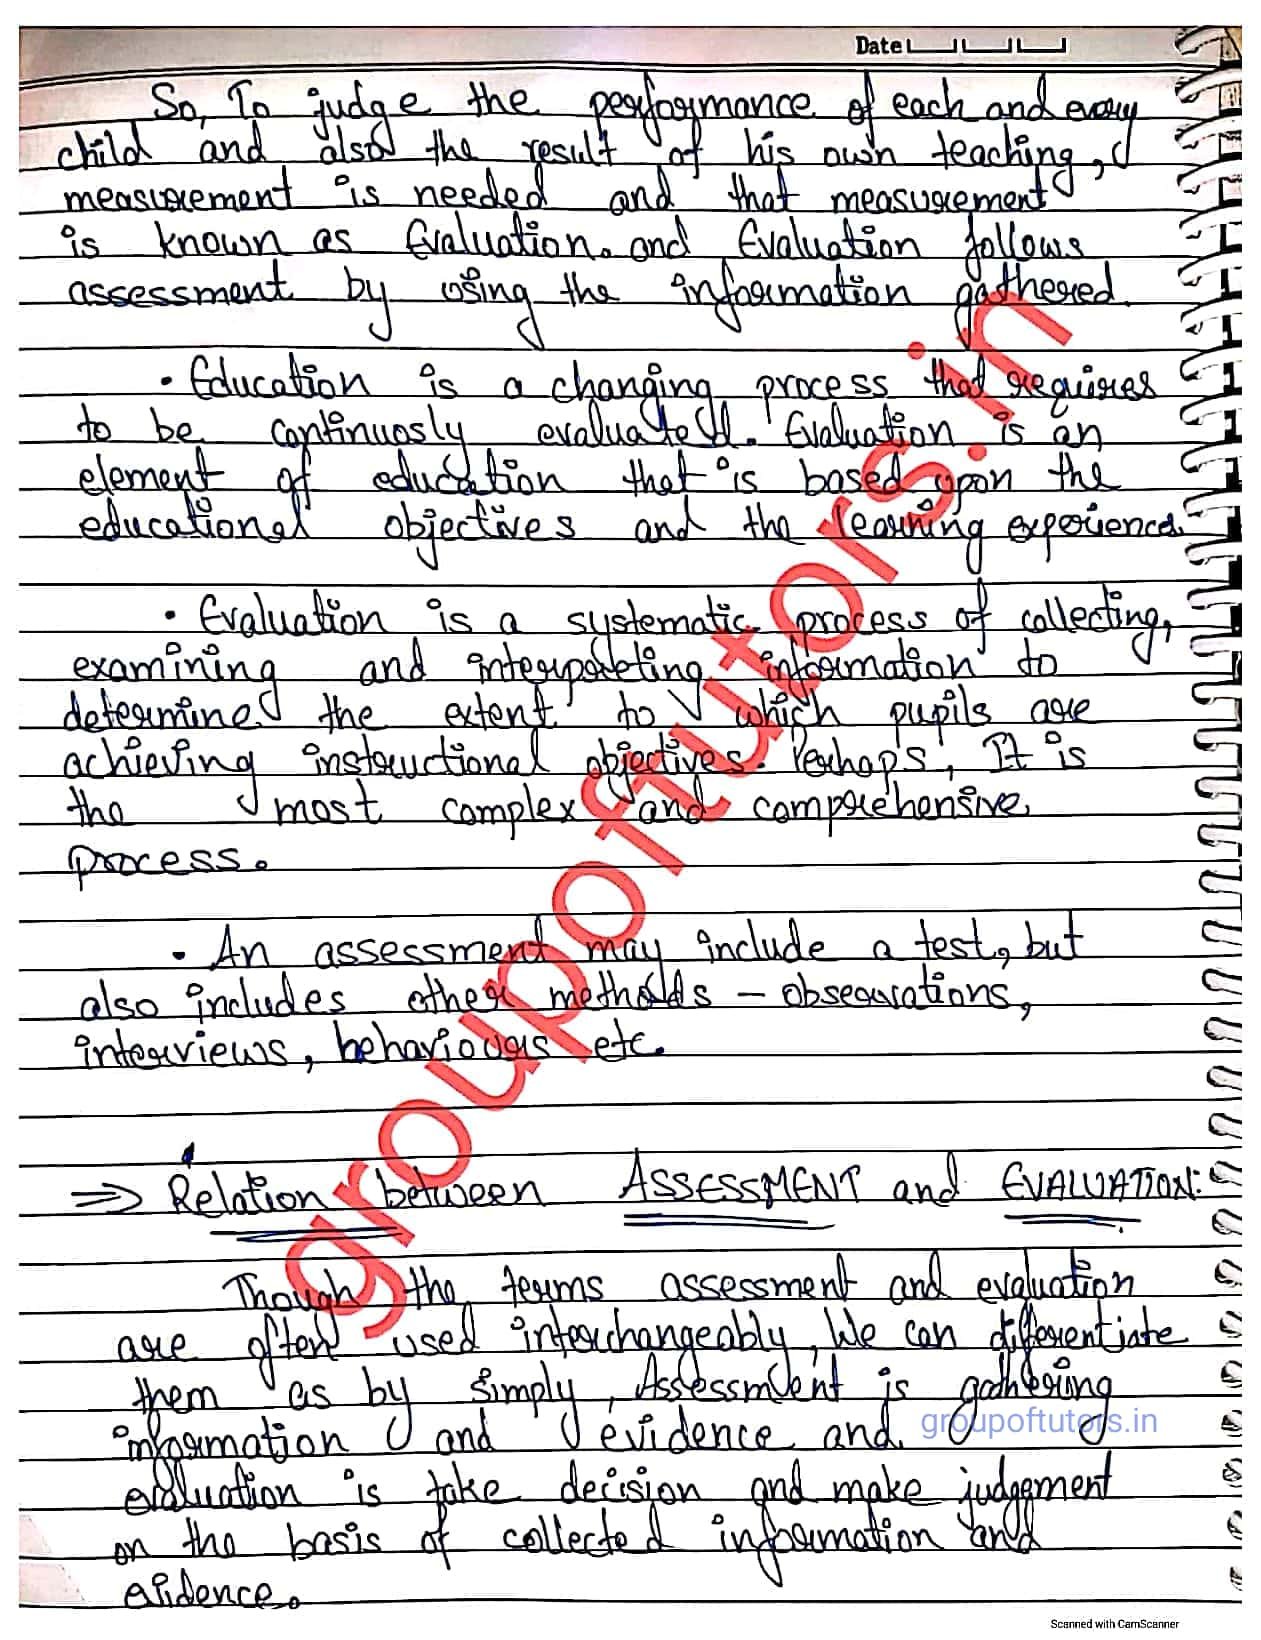 Date
So, To judge the performance of each and every
child and also the result of his own teaching,
measurement is needed and that measurement
is known as Evaluation. and Evaluation follows
assessment by using the information gathered.
• Education is a changing process that requires
to be continuosly evaluated. Evaluation is an
element of education that is based upon the
educational objectives and the learning experience.
• Evaluation is a systematic process of collecting,
examining and interpreting information to
determine the extent to which pupils are
achieving instructional objectives. Perhaps, It is
the most complex and comprehensive
process.
• An assessment may include a test, but
also includes other methods - observations,
interviews, behaviours etc.
⇒ Relation between ASSESSMENT and EVALUATION:
Though the terms assessment and evaluation
are often used interchangeably, We can differentiate
them as by simply, Assessment is gathering
information and evidence and
evaluation is take decision and make judgement
on the basis of collected information and
evidence.
groupoftutors.in
groupoftutors.in
Scanned with CamScanner